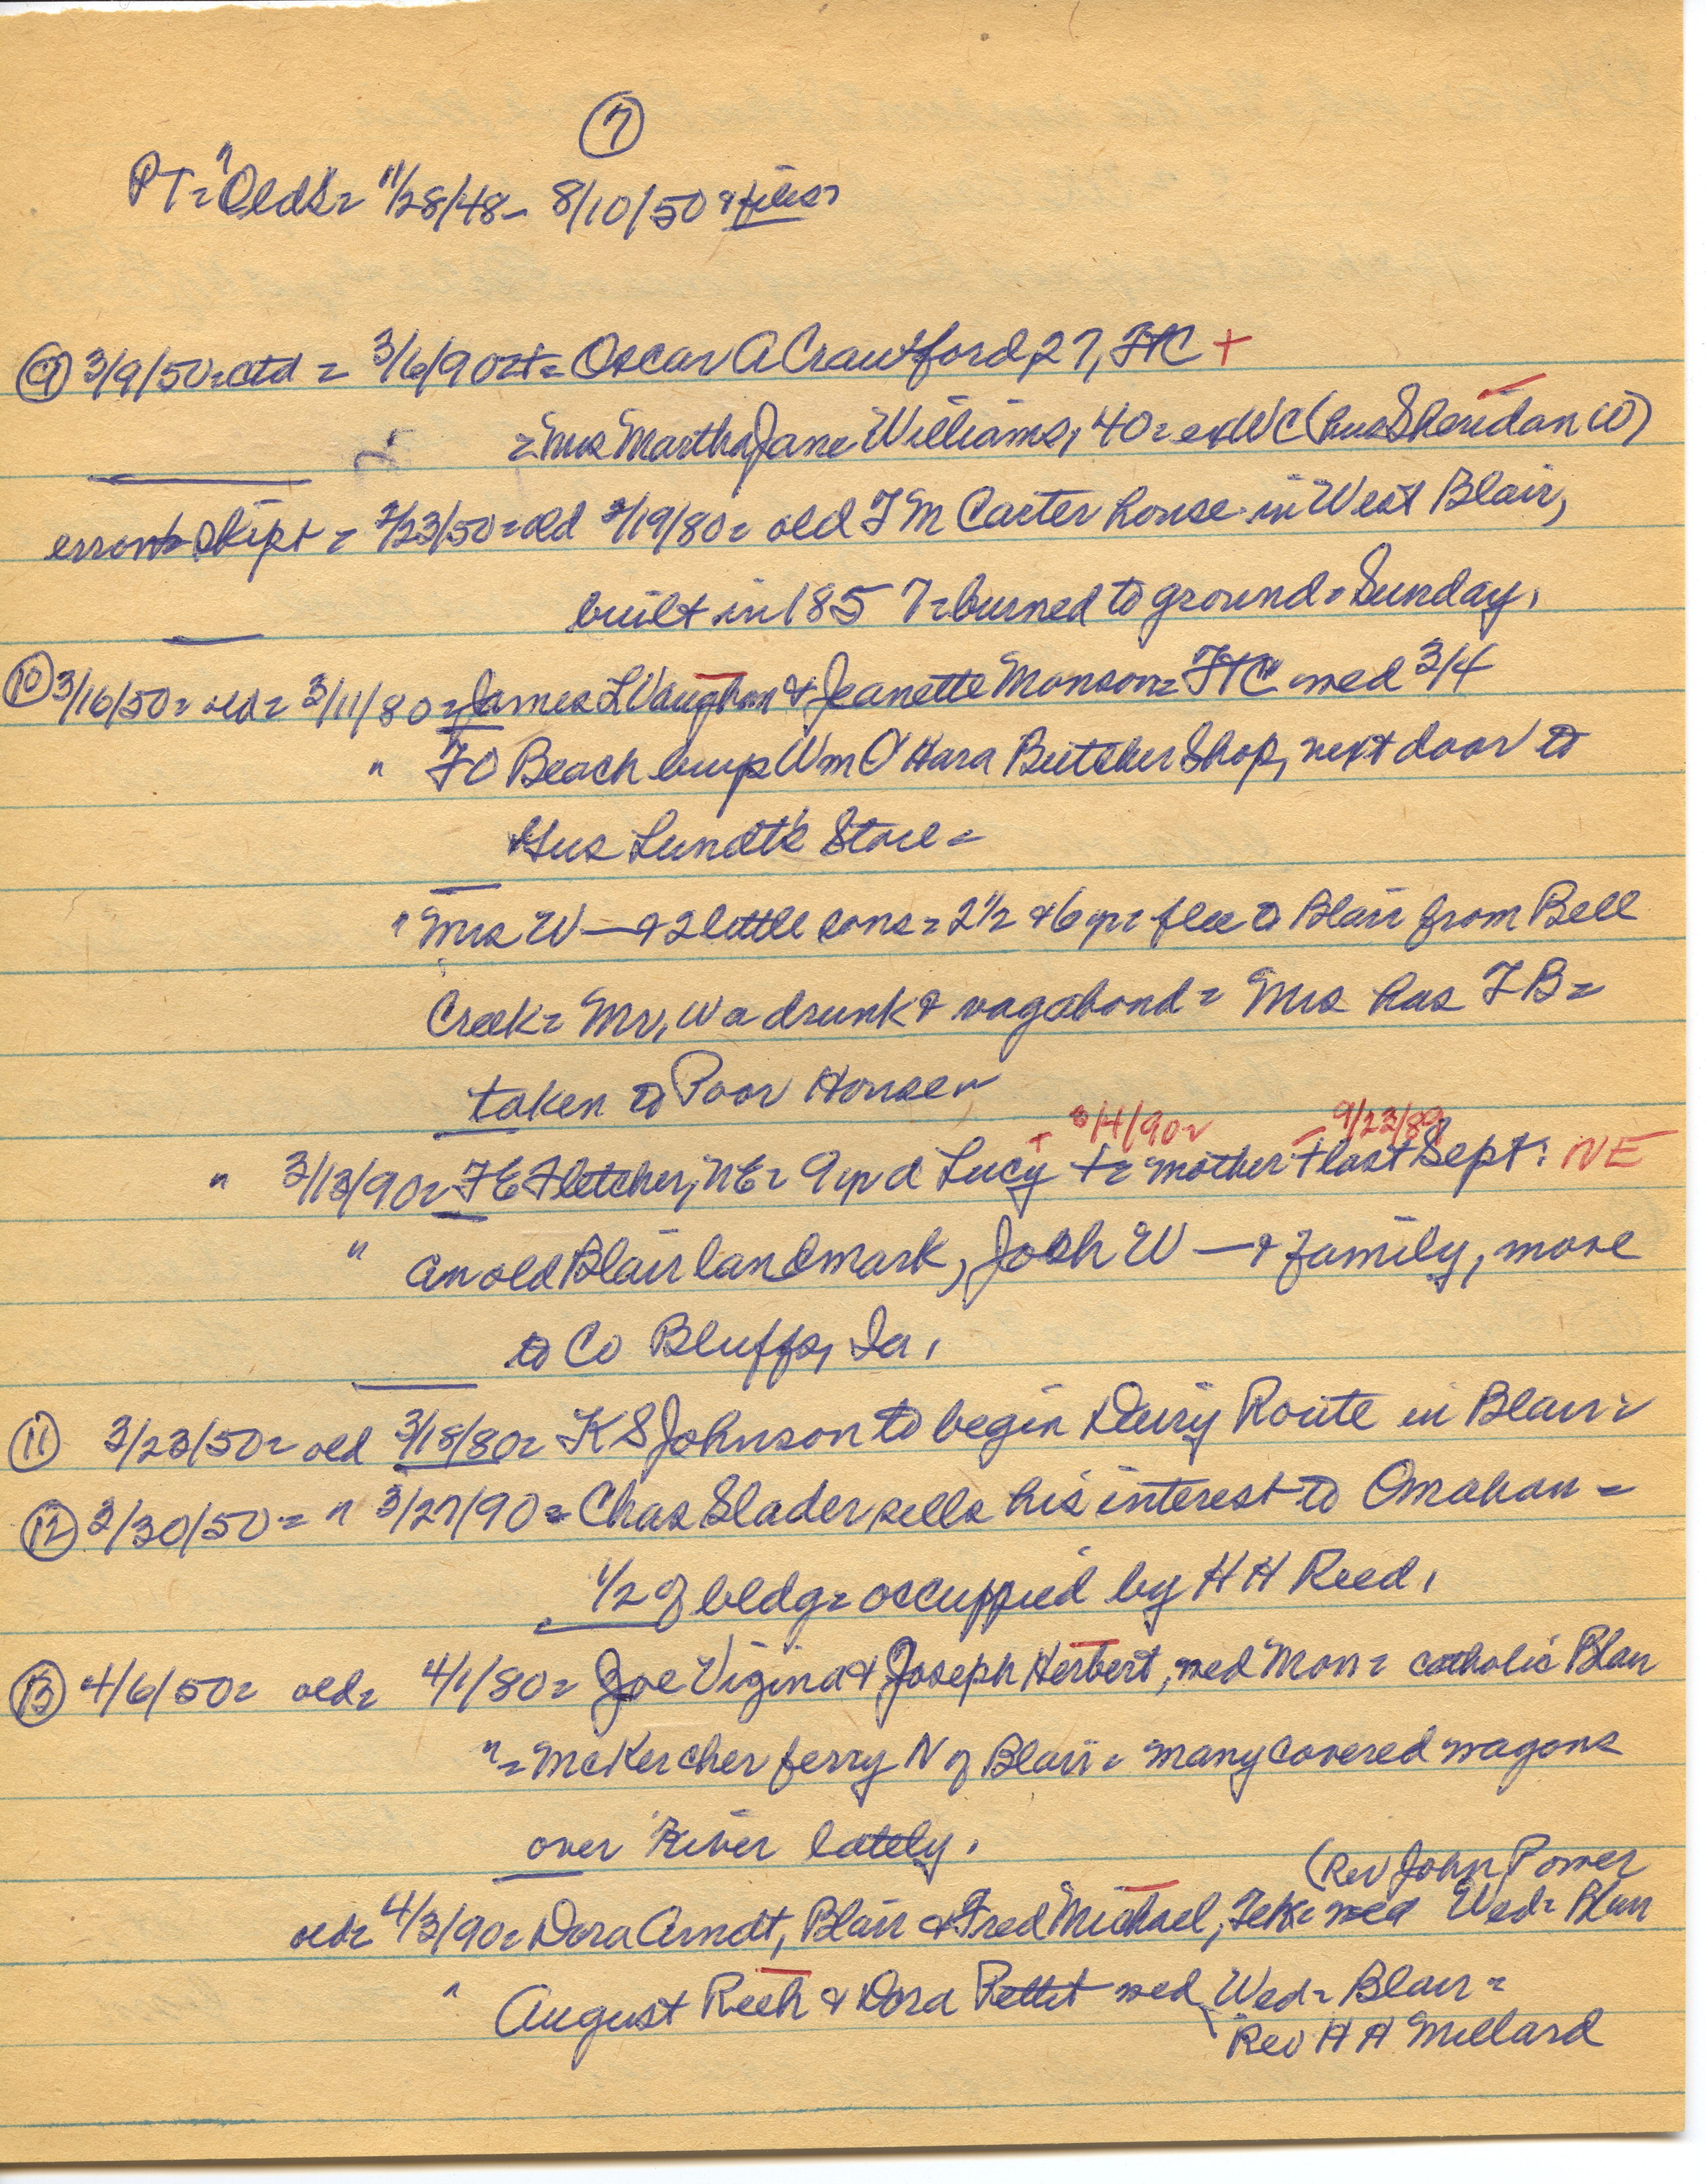 7
PT = "Olds = 11/28/48 - 8/10/50 & files
9 3/9/50 = ctd = 3/6/90 = + = Oscar A Crawford, 27, FtC +
= Mrs Martha Jane Williams, 40 = exWC (hus Sheridan W)
error = skipt = 2/23/50 = old 2/19/80 = old F M Carter house in West Blair,
built in 1857 = burned to ground = Sunday,
10 3/16/50 = old = 3/11/80 = James L Vaughan & Jeanette Monson = FtC wed 3/4
" FO Beach buys Wm O'Hara Butcher Shop, next door to
Gus Lundt's Store =
" Mrs W— & 2 little sons = 2 1/2 & 6 yr = flee to Blair from Bell
Creek = Mr, W a drunk & vagabond = Mrs has TB =
taken to Poor House =
+ 3/4/90 = 9/23/89
" 3/13/90 = FE Fletcher, NE = 9 yr d Lucy + = mother + last Sept: NE
" an old Blair landmark, Josh W — & family, move
to Co Bluffs, Ia,
11 3/23/50 = old 3/18/80 = K S Johnson to begin Dairy Route in Blair =
12 3/30/50 = " 3/27/90 = Chas Slader sells his interest to Omahan =
1/2 of bldg = occuppied by H H Reed,
13 4/6/50 = old = 4/1/80 = Joe Vigina & Joseph Herbert, wed Mon = catholic Blair
" = McKercher ferry N of Blair = many covered wagons
over River lately.
(Rev John Power
old = 4/3/90 = Dora Arndt, Blair & Fred Michael, Tek = wed Wed = Blair
" August Reeh & Dora Pettit wed Wed = Blair =
Rev H A Millard